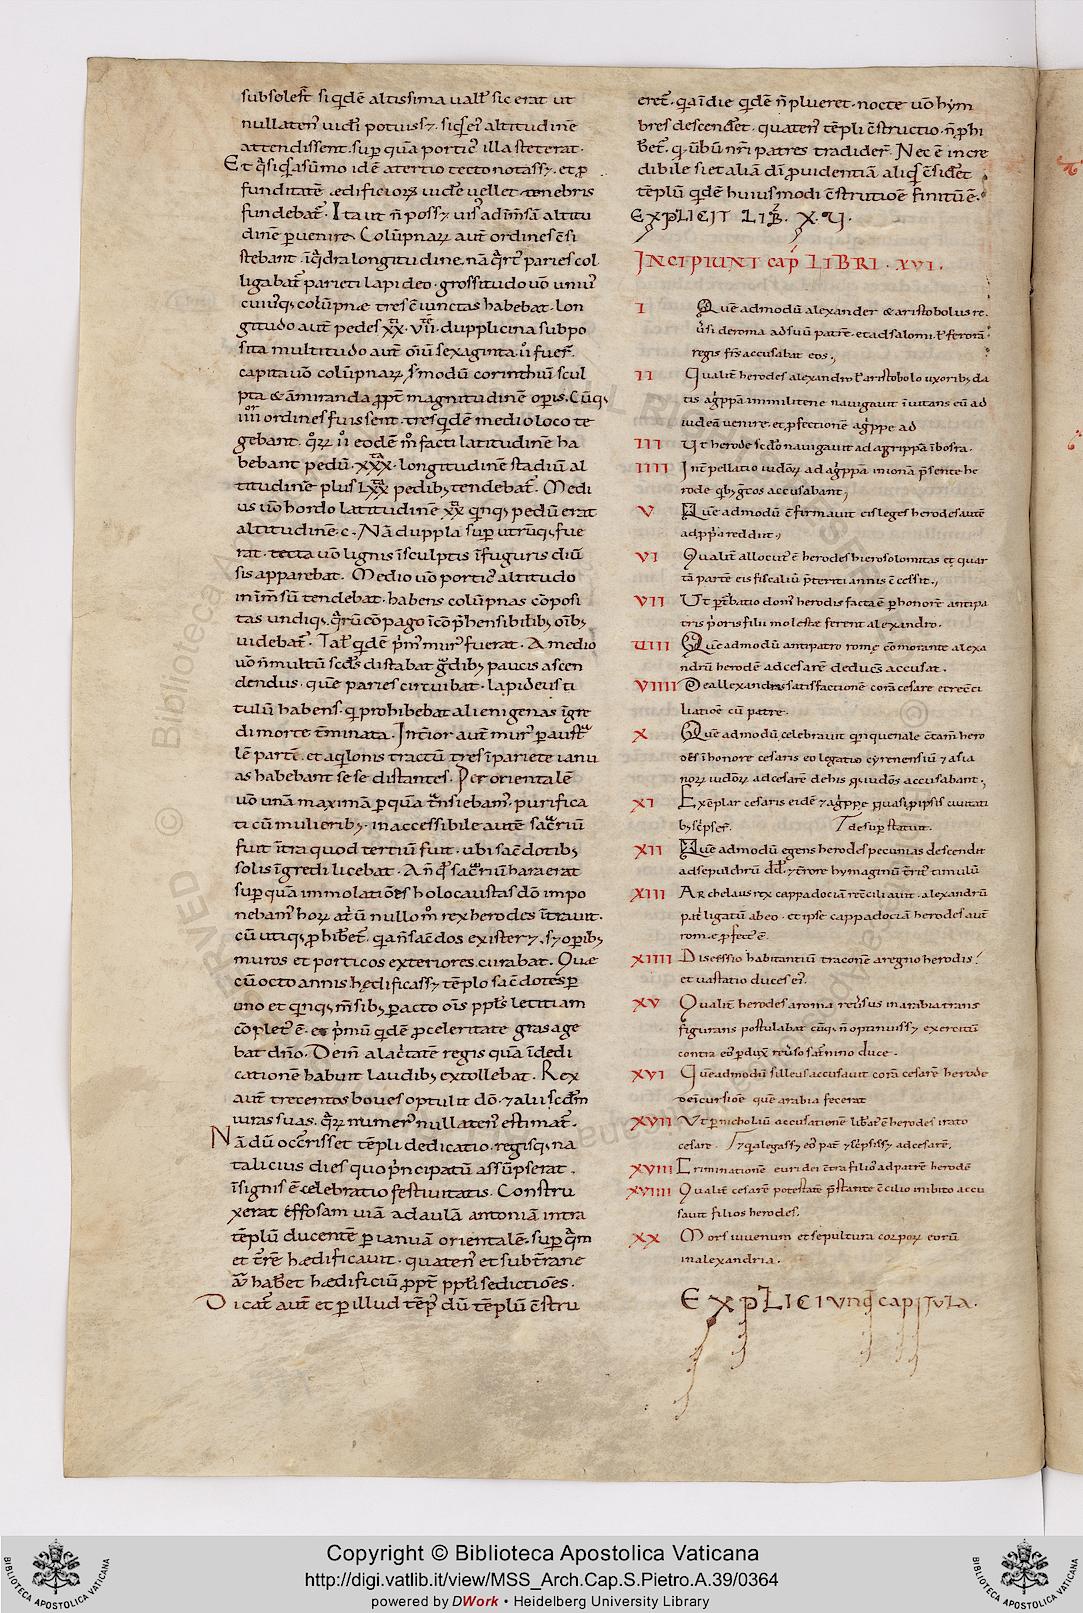 subsolest siqdē altissima uall' sic erat ut
nullaten' uidi potuiss&. siqs ei' altitudinē
attendissent. sup quā portic' illa steterat.
Et qsi qs asūmo idē atertio tecto notass&. et p
funditatē ædificiorꝝ uide uellet tenebris
fundebat'. Ita ut ñ poss& uis' ad im̄sā altitu
dinē puenire. Colūpnarꝝ aut ordines c̄si
stebant. iqdra longitudine. nā qrt' paries col
ligabat' parieti lapideo. grossitudo uō uniu'
cuiusqꝫ colūpnæ tres c̄iunctas habebat. lon
gitudo aut pedes xx. vii. dupplici na subpo
sita multitudo aut oīū sexaginta. ii fuer'.
capita uō colūpnarꝝ s' modū corinthiū scul
pta & āmiranda ppt magnitudinē opis. Cūqꝫ
iiii ordines fuissent. tres qdē medio loco te
gebant. qrꝝ ii eodē m° facti latitudinē ha
bebant pedū. xxx. longitudinē stadiū al
titudinē plus Lxx pedibꝫ tendebat'. Medi
us uō hordo latitudinē xx qnqꝫ pedū erat
altitudinē. c. Nā duppla sup utrūqꝫ fue
rat. tecta uō lignis īsculptis īfiguris diū
sis apparebat. Medio uō portic' altitudo
in im̄sū tendebat. habens colūpnas cōposi
tas undiqꝫ. qrū cōpago īcōphensibilibꝫ oībꝫ
uidebat'. Tal' qdē pim' mur' fuerat. A medio
uō ñ multū scds distabat gdibꝫ paucis ascen
dendus. quē paries circuibat. lapideus ti
tulū habens. q prohibebat alienigenas īgre
di morte t̄minata. Int̄ior aut mur' p aust
lē partē. et aqlonis tractū tres ī pariete ianu
as habebant se se distantes. Per orientalē
uō unā maximā p quā tnsiebam'. purifica
ti cū mulieribꝫ. inaccessibile autē sacriū
fuit īt̄ra quod tertiū fuit. ubi sac̄dotibꝫ
solis īgredi licebat. Añ qd' sacriū hara erat
sup quā immolatiōes holocaustas dō impo
nebam' horꝝ at ū nullom° rex herodes īt̄rauit.
cū utiqꝫ phibet'. qa ñ sac̄dos exister&. s& opibꝫ
muros et porticos exteriores curabat. Quæ
cū octo annis hędificass& tēplo sac̄dotes p
uno et qnqꝫ m̄sibꝫ pacto oīs ppls letitiam
cōplet' ē. et pimū qdē p celeritate gras age
bat dño. Dein alac'tatē regis quā īdedi
cationē habuit laudibꝫ extollebat. Rex
aut trecentos boues optulit dō. & alii scdm
uiras suas. qrꝝ numer' nullaten' estimat'.
Nā dū occ'risset tēpli dedicatio. regisqꝫ na
talicius dies quo pncipatū assūpserat.
īsignis ē celebratio festiuitatis. Constru
xerat effosam uiā ad aulā antoniā intra
tēplū ducentē p ianuā orientalē. sup qm
et t̄rē hædificauit. quaten' et subt̄rane
a habet hædificiū ppt ppli sedictiōes.
Dicat' aut et p illud tēp' dū tēplū c̄stru
eret'. qa īdie qdē ñ plueret. nocte uō hym
bres descend'et. quaten' tēpli c̄structio. ñ phi
bet'. q. ūbū nri patres tradider'. Nec ē incre
dibile si et aliā dī puidentiā aliqs c̄sid'et
tēplū qdē huiusmodi c̄strutioē finitū ē.
EXPLICIT LIB. X.U.
INCIPIUNT cap LIBRI. XVI.
I Quē admodū alexander & aristobolus re.
u'si de roma ad suū patrē. et ad salomī. t' ferorā
regis frs accusabat eos.
II Qualit̄ herodes alexandro t' aristobolo uxoribꝫ da
tis agppā immilitene nauigauit īuitans eū ad
iudeā uenire. et pfectionē agppe ad
III Ut herodes scdo nauigauit ad agrippā ībosra.
IIII Int̄pellatio iudorꝝ ad agppā in ionā psente he
rode qbꝫ gcos accusabant
V Quē admodū c̄firmauit eis leges herodes autē
ad ppa rediit
VI Qualit̄ allocut' ē herodes hierosolomitas et quar
tā partē eis fiscaliū pteriti annis c̄cessit.
VII Ut ptbatio dom' herodis facta ē p honorē antipa
tris pioris filii moleste ferent alexandro.
VIII Quē admodū antipatro romę cōmorante alexa
ndrū herodē ad cesarē deduces accusat.
VIIII De allexandri satisfactionē corā cesare et rec̄ci
liatioē cū patre.
X Quē admodū celebrauit qnquenale c̄tam hero
des ī honore cesaris eo legatio cyrenensiū & asia
norꝝ iudorꝝ ad cesarē de his q iudos accusabant.
XI Exēplar cesaris eidē & agppe quasi p ipsis ciuitati
bꝫ scpser'. T de sup statuit.
XII Quē admodū egens herodes pecunias descendit
ad sepulchrū dd. & t̄rore hymaginū t̄rit' timulū
XIII Archelaus rex cappadociā recc̄iliauit. alexandrū
pat' ligatū abeo. et ipse cappadociā herodes aut
romæ pfect' ē.
XIIII Discessio habitantiū traconē aregno herodis
et uastatio duces ei'.
XV Qualit̄ herodes aroma reu'sus in arabia trans
figurans postulabat cūqꝫ ñ optinuiss& exercitū
contra eos pdux' reu'so sat'nino duce.
XVI Quē admodū silleus accusauit corā cesare herode
de īcursione quē arabia fecerat
XVII Ut p nicholiū accusationē lib'at' ē herodes irato
cesare. T & qa legass& eos pat' & scpsiss& ad cesarē.
XVIII Criminationē euridei c̄tra filios ad patrē herodē
XVIIII Qualit̄ cesarē potestatē pstante c̄cilio inibito accu
sauit filios herodes.
XX Mors iuuenum et sepultura corporꝝ eorū
in alexandria.
EXPLICIUNT capitula.
Copyright © Biblioteca Apostolica Vaticana
http://digi.vatlib.it/view/MSS_Arch.Cap.S.Pietro.A.39/0364
powered by DWork • Heidelberg University Library
BIBLIOTECA APOSTOLICA VATICANA
BIBLIOTECA APOSTOLICA VATICANA